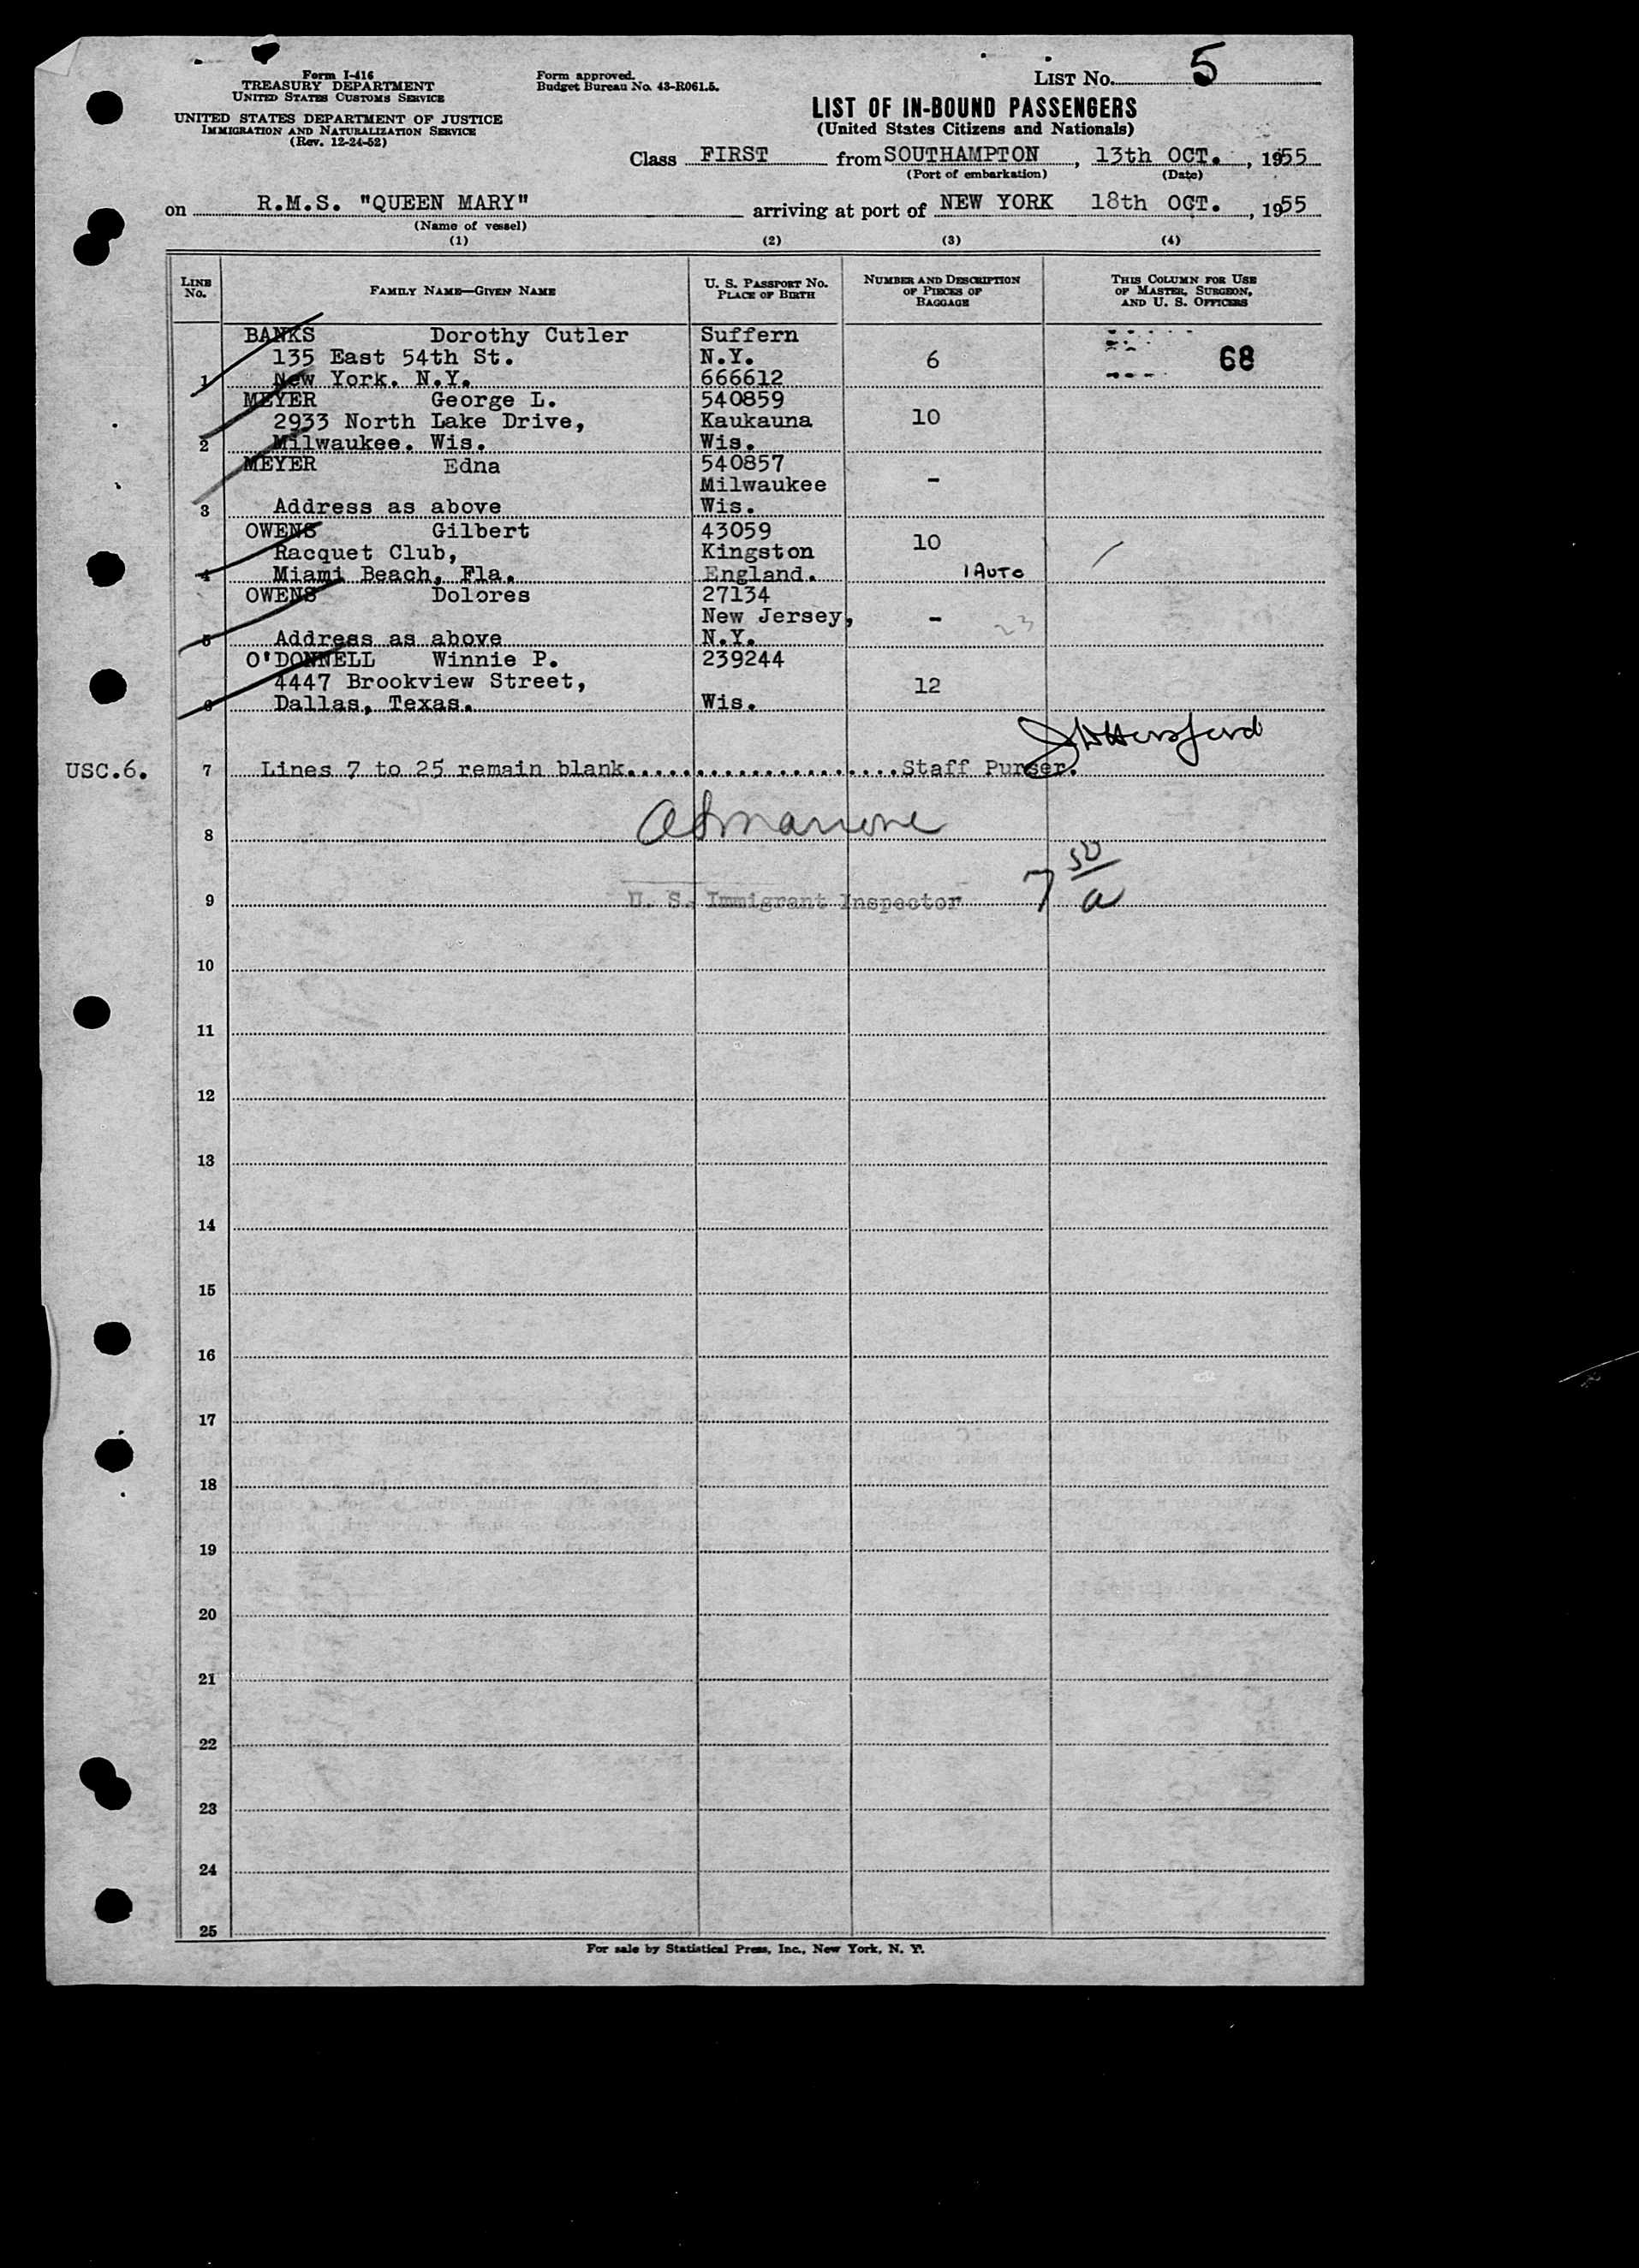 Form I-416
TREASURY DEPARTMENT
UNITED STATES CUSTOMS SERVICE
UNITED STATES DEPARTMENT OF JUSTICE
IMMIGRATION AND NATURALIZATION SERVICE
(Rev. 12-24-52)
Form approved.
Budget Bureau No. 43-R061.5.
LIST No. 5
LIST OF IN-BOUND PASSENGERS
(United States Citizens and Nationals)
Class FIRST from SOUTHAMPTON, 13th OCT., 1955
(Port of embarkation) (Date)
on R.M.S. "QUEEN MARY" arriving at port of NEW YORK 18th OCT., 1955
(Name of vessel)
(1) (2) (3) (4)
LINE No. FAMILY NAME—GIVEN NAME U. S. PASSPORT NO. PLACE OF BIRTH NUMBER AND DESCRIPTION OF PIECES OF BAGGAGE THIS COLUMN FOR USE OF MASTER, SURGEON, AND U. S. OFFICERS
BANKS Dorothy Cutler Suffern
135 East 54th St. N.Y. 6 68
1 New York. N.Y. 666612
MEYER George L. 540859
2933 North Lake Drive, Kaukauna 10
2 Milwaukee. Wis. Wis.
MEYER Edna 540857
Milwaukee -
3 Address as above Wis.
OWENS Gilbert 43059
Racquet Club, Kingston 10
4 Miami Beach, Fla. England. 1 AUTO
OWENS Dolores 27134
New Jersey, -
5 Address as above N.Y. 23
O'DONNELL Winnie P. 239244
4447 Brookview Street, 12
6 Dallas, Texas. Wis.
USC.6. 7 Lines 7 to 25 remain blank....................Staff Purser.
8
9 U. S. Immigrant Inspector 7 50/a
10
11
12
13
14
15
16
17
18
19
20
21
22
23
24
25
For sale by Statistical Press, Inc., New York, N. Y.